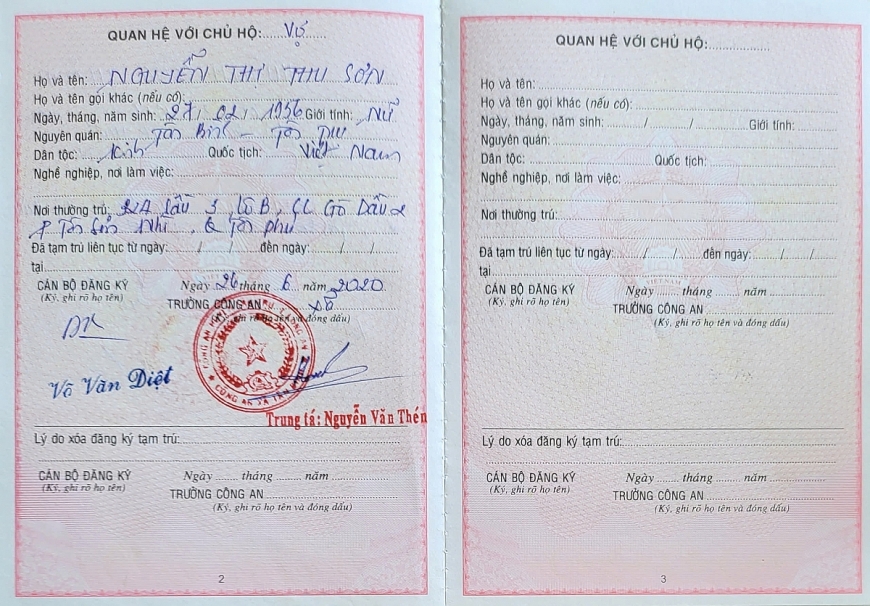 QUAN HỆ VỚI CHỦ HỘ: Vợ
Họ và tên: NGUYỄN THỊ THU SƠN
Họ và tên gọi khác (nếu có):
Ngày, tháng, năm sinh: 27/02/1956 Giới tính: Nữ
Nguyên quán: Tân Bình - Tân Trụ
Dân tộc: Kinh Quốc tịch: Việt Nam
Nghề nghiệp, nơi làm việc:
Nơi thường trú: Lầu Lô B, Gò Dầu 2
P Tân Sơn Nhì, Q Tân phú
Đã tạm trú liên tục từ ngày: / / đến ngày: / /
tại
CÁN BỘ ĐĂNG KÝ Ngày 26 tháng 6 năm 2020
(Ký, ghi rõ họ tên) TRƯỞNG CÔNG AN
(Ký, ghi rõ họ tên và đóng dấu)
Võ Văn Diệt
Trung tá: Nguyễn Văn Thén
Lý do xóa đăng ký tạm trú:
CÁN BỘ ĐĂNG KÝ Ngày tháng năm
(Ký, ghi rõ họ tên) TRƯỞNG CÔNG AN
(Ký, ghi rõ họ tên và đóng dấu)
2
QUAN HỆ VỚI CHỦ HỘ:
Họ và tên:
Họ và tên gọi khác (nếu có):
Ngày, tháng, năm sinh: / / Giới tính:
Nguyên quán:
Dân tộc: Quốc tịch:
Nghề nghiệp, nơi làm việc:
Nơi thường trú:
Đã tạm trú liên tục từ ngày: / / đến ngày: / /
tại
CÁN BỘ ĐĂNG KÝ Ngày tháng năm
(Ký, ghi rõ họ tên) TRƯỞNG CÔNG AN
(Ký, ghi rõ họ tên và đóng dấu)
Lý do xóa đăng ký tạm trú:
CÁN BỘ ĐĂNG KÝ Ngày tháng năm
(Ký, ghi rõ họ tên) TRƯỞNG CÔNG AN
(Ký, ghi rõ họ tên và đóng dấu)
3